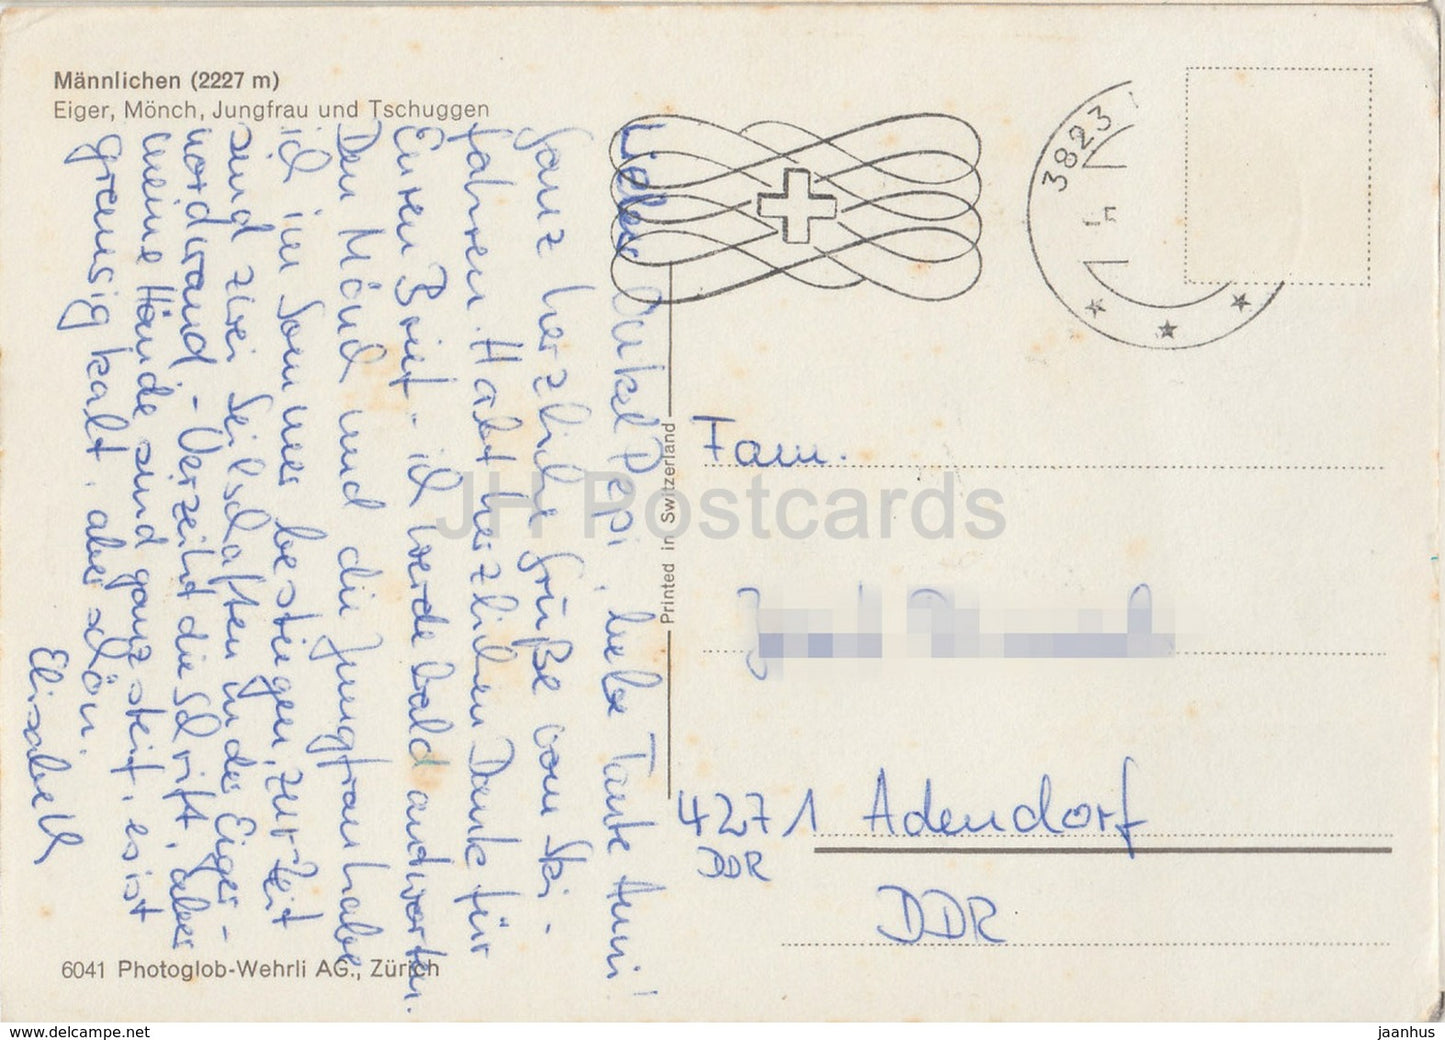 Männlichen (2227 m)
Eiger, Mönch, Jungfrau und Tschuggen
Lieber Onkel Pepi, liebe Tante Anni!
Ganz herzliche Grüße vom Ski-
fahren. Habt herzlichen Dank für
Euren Brief - ich werde bald antworten.
Den Mönch und die Jungfrau habe
ich im Sommer bestiegen, zur Zeit
sind zwei Seilschaften in der Eiger-
nordwand. - Verzeiht die Schrift, aber
meine Hände sind ganz steif, es ist
grausig kalt, aber schön.
Elisabeth
3823
Printed in Switzerland
Fam.
4271 Adendorf
DDR
DDR
6041 Photoglob-Wehrli AG., Zürich
JH Postcards
www.delcampe.net
jaanhus